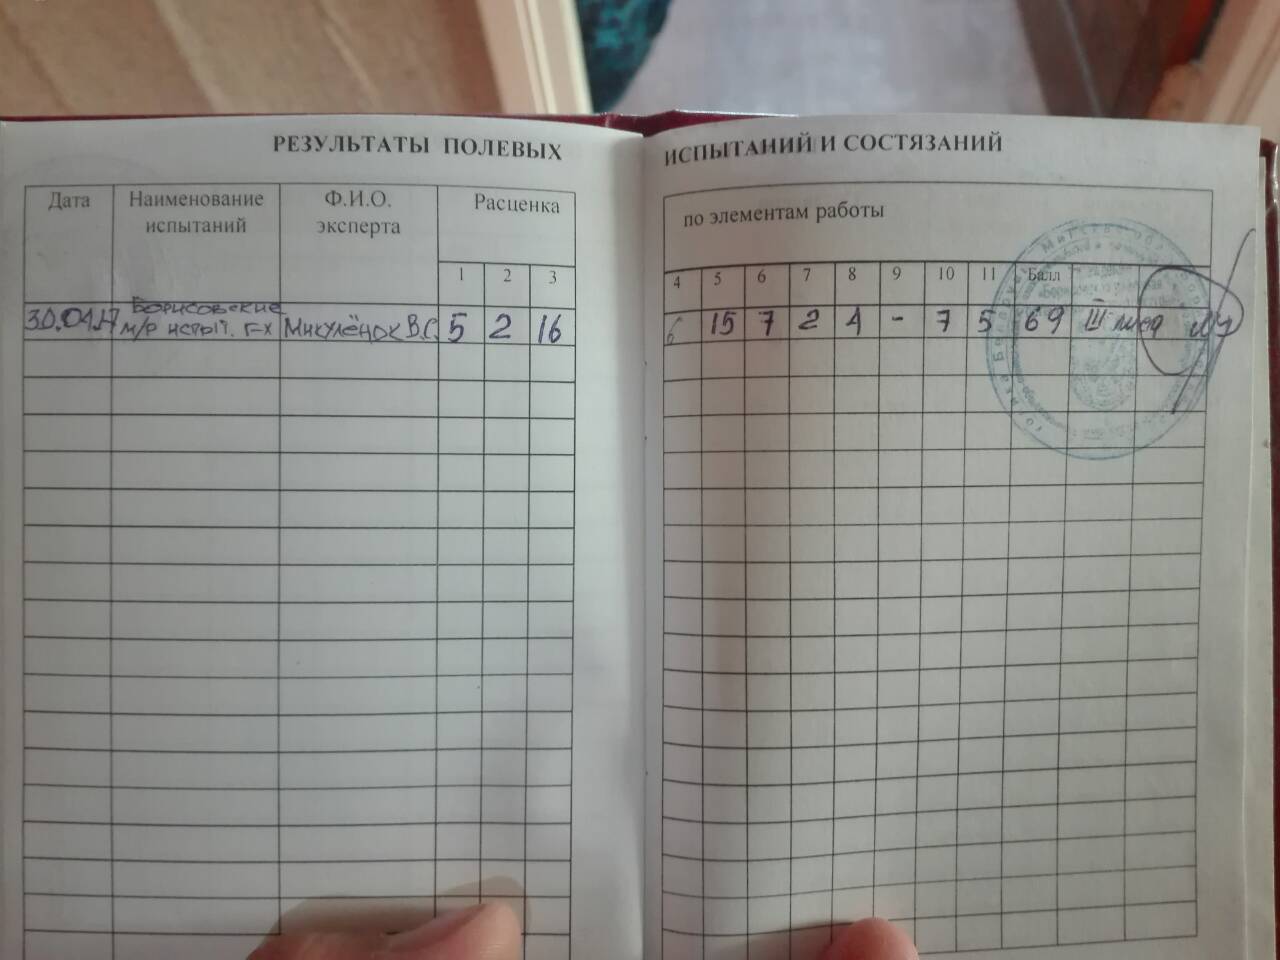 РЕЗУЛЬТАТЫ ПОЛЕВЫХ ИСПЫТАНИЙ И СОСТЯЗАНИЙ
Дата
Наименование
испытаний
Ф.И.О.
эксперта
Расценка
по элементам работы
1 2 3 4 5 6 7 8 9 10 11 Балл
Борисовские
30.04.17 м/р испыт. г-х Микулёнок В.С. 5 2 16 6 15 7 2 4 - 7 5 69 III